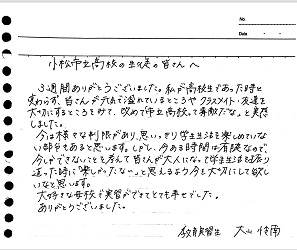 No.
Date
小松市立高校の生徒の皆さんへ
3週間ありがとうございました。私が高校生であった時と
変わらず、皆さんが元気で溢れているところやクラスメイト・友達を
大切にするところを見て、改めて市立高校って素敵だな。と実感
しました。
今は様々な制限があり、思いっきり学生生活を楽しめていな
い部分もあると思います。しかし、今ある時間は有限なので、
今しかできないことを考えて皆さんが大人になって学生生活を振り
返った時に「楽しかったな〜」と思えるよう今を大切にして欲し
いなと思います。
大好きな母校で実習ができてとても幸せでした。
ありがとうございました。
教育実習生 大山